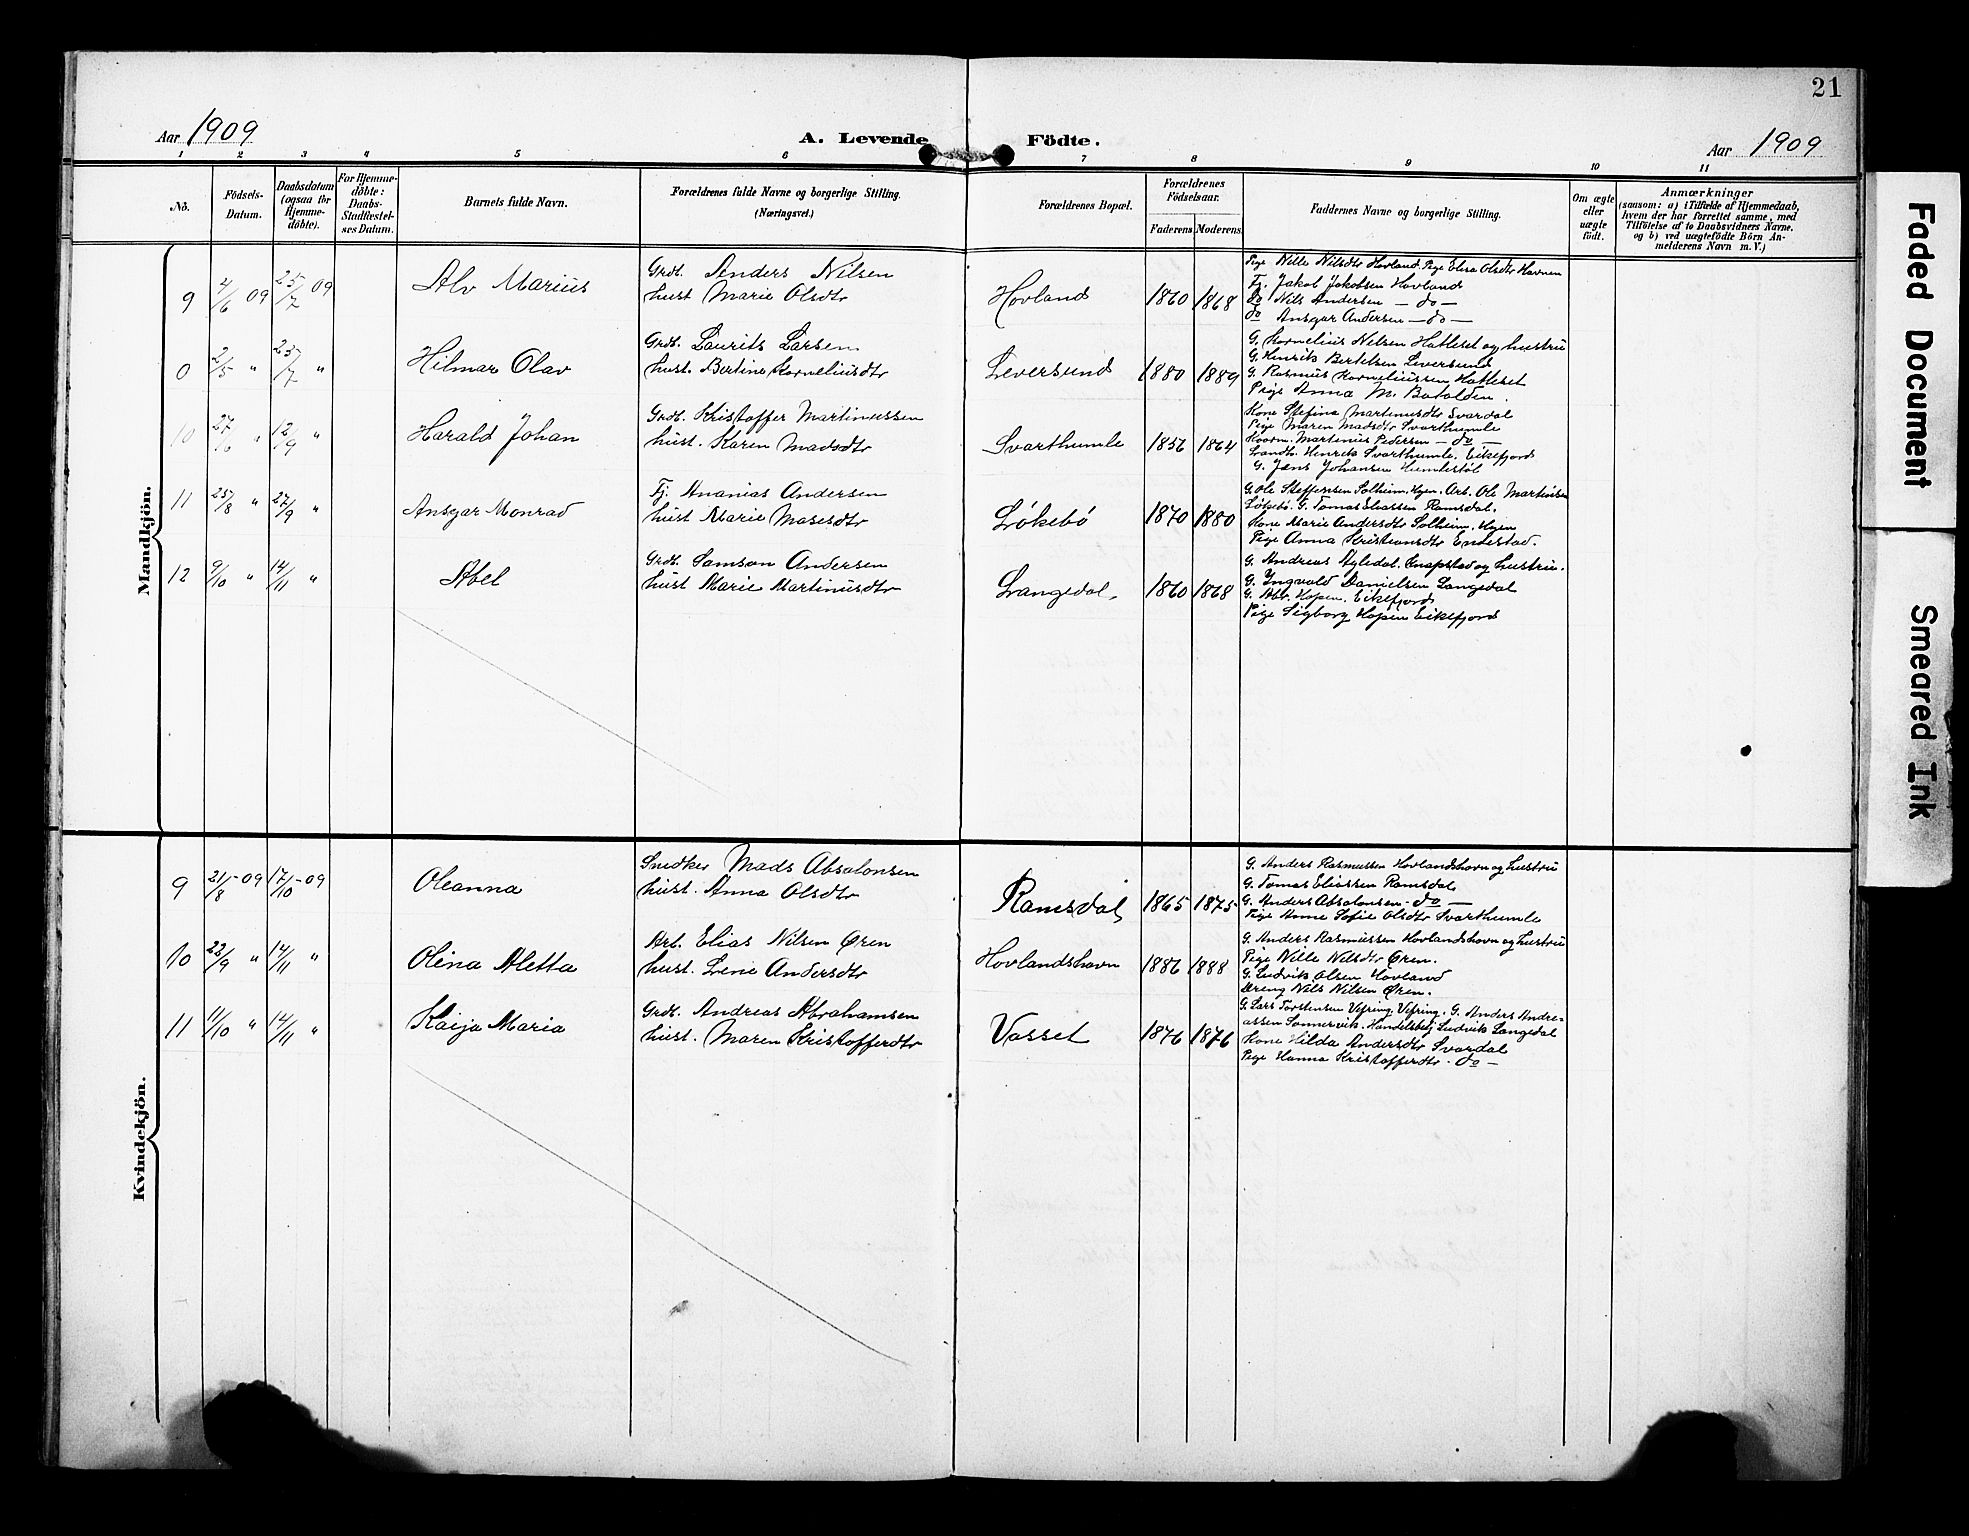 21
Aar 1909
A. Levende Födte.
Aar 1909
1 2 3 4 5 6 7 8 9 10 11
No.
Födsels-
Datum.
Daabsdatum
(ogsaa for
Hjemme-
døbte).
For Hjemme-
døbte:
Daabs-
Stadfæstel-
ses Datum.
Barnets fulde Navn.
Forældrenes fulde Navne og borgerlige Stilling.
(Næringsvei.)
Forældrenes Bopæl.
Forældrenes
Födselsaar.
Faderens Moderens
Faddernes Navne og borgerlige Stilling.
Om ægte
eller
uægte
født.
Anmærkninger
(saasom: a) i Tilfælde af Hjemmedaab,
hvem der har forrettet samme, med
Tilföielse af to Daabsvidners Navne.
og b) ved uægtefödte Börn An-
melderens Navn m. V.)
Mandkjön.
9 4/6 09 25/7 09 Alv Marius
Grdb. Anders Nilsen
hust Marie Olsdtr
Hovland 1860 1868
Pige Nille Nilsdtr Hovland. Pige Elisa Olsdtr Havnen
Fj. Jakob Jakobsen Hovland
do Nils Andersen — do —
do Ansgar Andersen — do —
0 2/5 " 25/7 " Hilmar Olav
Grdb. Laurits Larsen
hust. Bertine Korneliusdtr
Leversund 1880 1889
G. Kornelius Nilsen Hatleset og hustru
G. Henrik Bertelsen Leversund
G. Rasmus Korneliussen Hatleset
Pige Anna M. Batalden.
10 27/6 " 12/9 " Harald Johan
Grdb. Kristoffer Martinussen
hust. Karen Madsdtr
Svarthumle 1856 1864
Kone Stefina Martinusdtr Svardal
Pige Maren Madsdtr Svarthumle
Martinus Pedersen — do —
Henrik Svarthumle. Eikefjord
G. Jens Johansen Humlestøl
11 25/8 " 27/9 " Ansgar Monrad
Fj. Ananias Andersen
hust Marie Mosesdtr
Løkebø 1870 1880
G. Ole Steffensen Solheim. Hyen. Arb. Ole Martinsen
Løkebø. G. Tomas Eliassen Ramsdal.
Kone Marie Andersdtr Solheim. Hyen
Pige Anna Kristiansdtr Endestad.
12 9/10 " 14/11 " Abel
Grdb. Samson Andersen
hust Marie Martinusdtr
Langedal. 1860 1868
G. Andreas Ayledal. Knapstad og hustru.
G. Ingvald Danielsen Langedal
G. Abr. Hopen. Eikefjord
Pige Sigborg Hopen Eikefjord
Kvindekjön.
9 21/8-09 17/10-09 Oleanna
Snedker Mads Absalonsen
hust. Anna Olsdtr
Ramsdal 1865 1875
G. Anders Rasmussen Hovlandshavn og hustru
G. Tomas Eliassen Ramsdal
G. Anders Absalonsen - do —
Pige Anne Sofie Olsdtr Svarthumle
10 22/9 " 14/11 " Olina Aletta
Arb. Elias Nilsen Øren
hust. Lene Andersdtr
Hovlandshavn 1886 1888
G. Anders Rasmussen Hovlandshavn og hustru
Pige Nille Nilsdtr Øren.
G. Ludvik Olsen Hovland
Dreng Nils Nilsen Øren.
11 11/10 " 14/11 " Kaija Maria
Grdb. Andreas Abrahamsen
hust. Maren Kristofferdtr
Vasset 1876 1876
G. Lars Torstensen Vefring. Vefring. G. Anders Andre-
assen Sonnervik. Handelsbetj Ludvik Langedal
Kone Hilda Andersdtr Svardal
Pige Hanna Kristofferdtr. do —
Faded Document
Smeared Ink